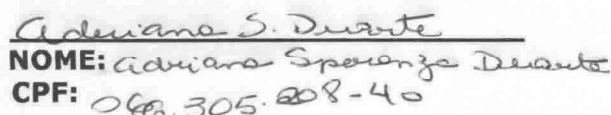 Adriana S. Duarte
NOME: Adriana Speranza Duarte
CPF: 066.305.808-40